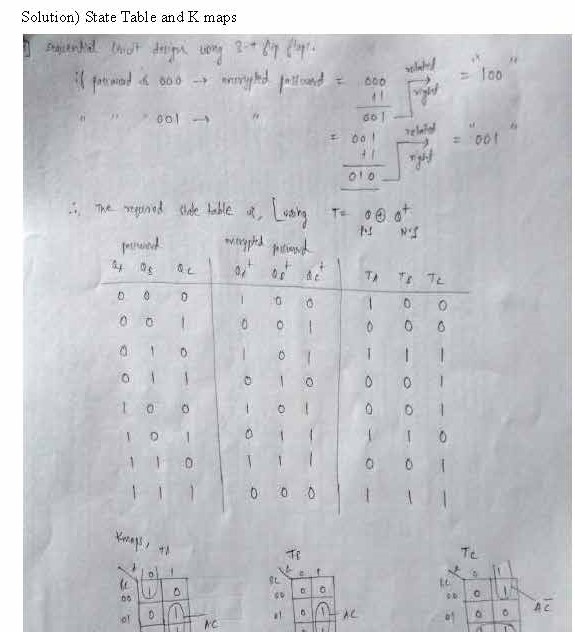 Solution) State Table and K maps
Sequential circuit design using 3-T flip flops.
if password is 000 → encrypted password = 000 rotated = "100"
11 right
001
" " 001 → " = 001 rotated = "001"
+1 right
010
∴ The required state table is, [using T = Q ⊕ Q+
P.S N.S
password encrypted password
QA QB QC QA+ QB+ QC+ TA TB TC
0 0 0 1 0 0 1 0 0
0 0 1 0 0 1 0 0 0
0 1 0 1 0 1 1 1 1
0 1 1 0 1 0 0 0 1
1 0 0 1 0 1 0 0 1
1 0 1 0 1 1 1 1 0
1 1 0 1 1 1 0 0 1
1 1 1 0 0 0 1 1 1
Kmaps, TA TB TC
A 0 1 A 0 1 A 0 1
BC BC BC
00 1 0 00 0 0 00 0 1
01 0 1 AC 01 0 1 AC 01 0 0 AC̅